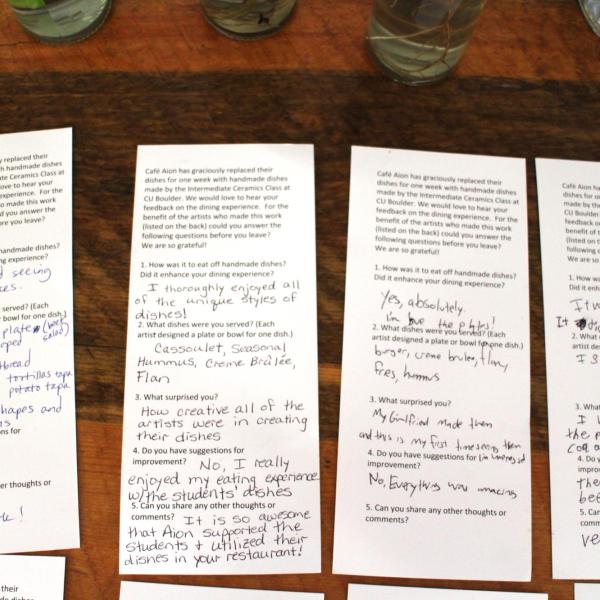 y replaced their
h handmade dishes
te Ceramics Class at
ove to hear your
experience. For the
o made this work
ld you answer the
re you leave?
handmade dishes?
ng experience?
d seeing
served? (Each
or bowl for one dish.)
plate
salad)
tortillas tapa
potato tapa
hapes and
ns for
her thoughts or
Café Aion has graciously replaced their
dishes for one week with handmade dishes
made by the Intermediate Ceramics Class at
CU Boulder. We would love to hear your
feedback on the dining experience. For the
benefit of the artists who made this work
(listed on the back) could you answer the
following questions before you leave?
We are so grateful!
1. How was it to eat off handmade dishes?
Did it enhance your dining experience?
I thoroughly enjoyed all
of the unique styles of
dishes!
2. What dishes were you served? (Each
artist designed a plate or bowl for one dish.)
Cassoulet, Seasonal
Hummus, Creme Brûlée,
Flan
3. What surprised you?
How creative all of the
artists were in creating
their dishes
4. Do you have suggestions for
improvement? No, I really
enjoyed my eating experience
w/the students' dishes
5. Can you share any other thoughts or
comments? It is so awesome
that Aion supported the
students + utilized their
dishes in your restaurant!
Café Aion has graciously replaced their
dishes for one week with handmade dishes
made by the Intermediate Ceramics Class at
CU Boulder. We would love to hear your
feedback on the dining experience. For the
benefit of the artists who made this work
(listed on the back) could you answer the
following questions before you leave?
We are so grateful!
1. How was it to eat off handmade dishes?
Did it enhance your dining experience?
Yes, absolutely.
love the plates!
2. What dishes were you served? (Each
artist designed a plate or bowl for one dish.)
burger, creme brulee, flan,
fries, hummus
3. What surprised you?
My Girlfriend made them
and this is my first time seeing them
4. Do you have suggestions for I'm impressed
improvement?
No, Everything was amazing
5. Can you share any other thoughts or
comments?
Café Aion ha
dishes for o
made by the
CU Boulder.
feedback on
benefit of th
(listed on the
following qu
We are so gr
1. How was
Did it enhan
It w
It
2. What
artist des
I s
3. What
I
the p
4. Do y
impro
the
5. Ca
com
their